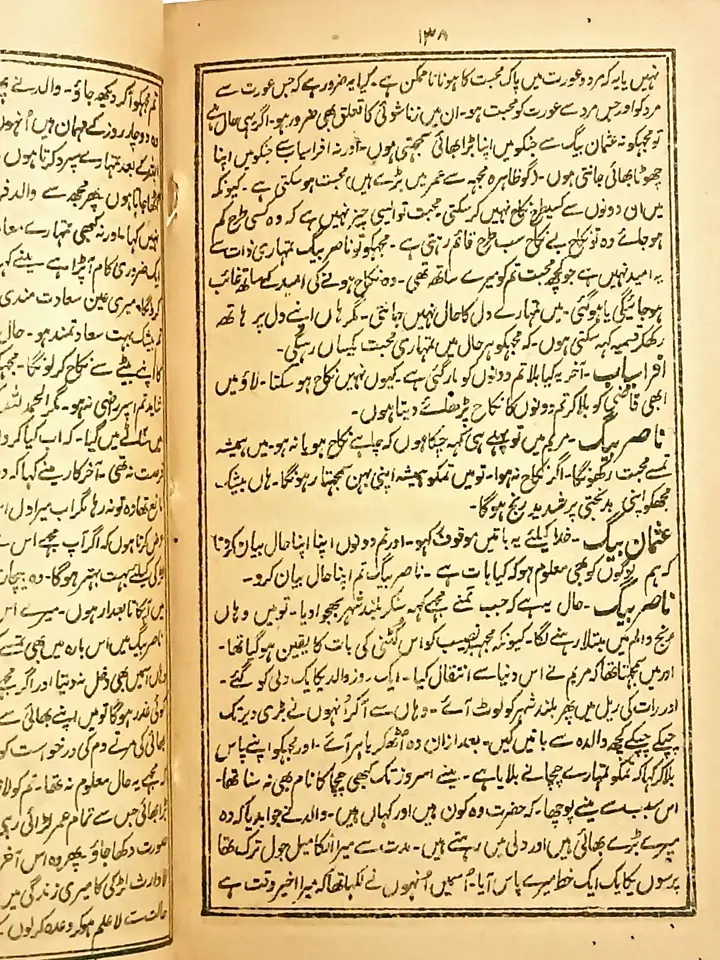 ۱۳۸
نہیں یا یہ کہ مرد و عورت میں پاک محبت کا ہونا ناممکن ہے۔ کیا یہ ضرور ہے کہ جس عورت سے
مرد کو اور جس مرد سے عورت کو محبت ہو۔ ان میں زناشوئی کا تعلق بھی ضرور ہو۔ اگر یہی حال ہے
تو مجہکو نہ عثمان بیگ سے جنکو میں اپنا بڑا بھائی سمجھتی ہوں۔ اور نہ افراسیاب سے جنکو میں اپنا
چھوٹا بھائی جانتی ہوں۔ (گو ظاہرہ مجہہ سے عمر میں بڑے ہیں) محبت ہو سکتی ہے۔ کیونکہ
میں ان دونوں سے کسیطرح نکاح نہیں کر سکتی۔ محبت تو ایسی چیز نہیں ہے کہ وہ کسی طرح کم
ہو جائے وہ تو نکاح بے نکاح سب طرح قائم رہتی ہے۔ مجہکو تو ناصر بیگ تمہاری ذات سے
یہ امید نہیں ہے جو کچھ محبت تم کو میرے ساتھ تھی۔ وہ نکاح ہونے کی امید کے ساتھ غائب
ہو جائیگی یا ہو گئی۔ میں تمہارے دل کا حال نہیں جانتی۔ مگر ہاں اپنے دل پر ہاتھ
رکھکر قسمیہ کہہ سکتی ہوں۔ کہ مجہکو ہر حال میں تمہاری محبت یکساں رہیگی۔
افراسیاب۔ آخر یہ کیا بلا تم دونوں کو مار گئی ہے۔ کیوں نہیں نکاح ہو سکتا۔ لاؤ میں
ابھی قاضی کو بلا کر تم دونوں کا نکاح پڑھائے دیتا ہوں۔
ناصر بیگ۔ مریم میں تو پہلے ہی کہہ چکا ہوں کہ چاہے نکاح ہو یا نہ ہو۔ میں ہمیشہ
تمسے محبت رکھونگا۔ اگر نکاح نہ ہوا۔ تو میں تمکو ہمیشہ اپنی بہن سمجہتا رہونگا۔ ہاں بیشک
مجھکو اپنی بدبختی پر شدید رنج ہوگا۔
عثمان بیگ۔ خدا کیلئے یہ باتیں موقوف کہو۔ اور تم دونوں اپنا اپنا حال بیان کرو تا
کہ ہم لوگوں کو بھی معلوم ہو کہ کیا بات ہے۔ ناصر بیگ تم اپنا حال بیان کرو۔
ناصر بیگ۔ حال یہ ہے کہ جب تمنے مجھے کہہ سنکر بلند شہر بھجوا دیا۔ تو میں وہاں
رنج و الم میں مبتلا رہنے لگا۔ کیونکہ مجہہ بدنصیب کو اس کٹنی کی بات کا یقین ہو گیا تھا۔
اور میں سمجہتا تھا کہ مریم نے اس دنیا سے انتقال کیا۔ ایک روز والد یکایک دلی کو گئے۔
اور رات کی ریل میں پھر بلند شہر کو لوٹ آئے۔ وہاں سے آ کر اُنہوں نے بڑی دیر تک
چپکے چپکے کچھ والدہ سے باتیں کیں۔ بعد ازان وہ اُٹھ کر باہر آئے۔ اور مجہکو اپنے پاس
بلا کر کہا کہ تمکو تمہارے چچا نے بلایا ہے۔ مینے اسروز تک کبھی چچا کا نام بھی نہ سنا تھا۔
اس سبب سے مینے پوچھا۔ کہ حضرت وہ کون ہیں اور کہاں ہیں۔ والد نے جواب دیا کہ وہ
میرے بڑے بھائی ہیں اور دلی میں رہتے ہیں۔ مدت سے میرا اُنکا میل جول ترک تھا
پرسوں یکایک ایک خط میرے پاس آیا۔ اُسمیں اُنہوں نے لکھا تھا کہ میرا اخیر وقت ہے
تم مجہکو آ کر دیکھ جاؤ۔ والد نے
وہ دو چار روز کے مہمان ہیں اُنہوں
کے بعد تمہارے سپرد کرتا ہوں
ہوں پھر مجھ سے والد
نہیں کہا۔ اور نہ کبھی تمہارے
ایک ضروری کام آ پڑا ہے۔ مینے
میری عین سعادت مندی
بیشک بہت سعادتمند ہو۔ حال
اپنے بیٹے سے نکاح کر لونگا۔
شاید تم اسپر راضی نہ ہو۔ مگر الحمد للہ
میں سناٹے میں گیا۔ کہ اب کیا کروں
نہ تھی۔ آخر کار مینے کہا کہ
تھا وہ تو نہ رہا مگر اب میرا دل
کرتا ہوں کہ اگر آپ مجھے اس
کیلئے بہت بہتر ہوگا۔ وہ
میں آپکا تابعدار ہوں۔ میرے
ناصر بیگ میں اس بارہ میں بھی
میں بھی دخل نہ دیتا اور اگر
ہوگا تو میں اپنے بھائی سے
بھائی کی مرتے دم کی درخواست کو
مجھے یہ حال معلوم نہ تھا۔ تم کو
بڑا بھائی جس سے تمام عمر لڑائی رہی
صورت دکھا جاؤ۔ پھر وہ اس آخر
لاوارث لڑکی کا میری زندگی میں
حالت سے لا علم ہو کر وعدہ کر لوں